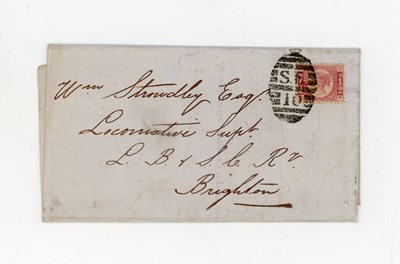 Wm Stroudley Esqr.
Locomotive Supt.
L. B & S. C Ry.
Brighton
S.E
10